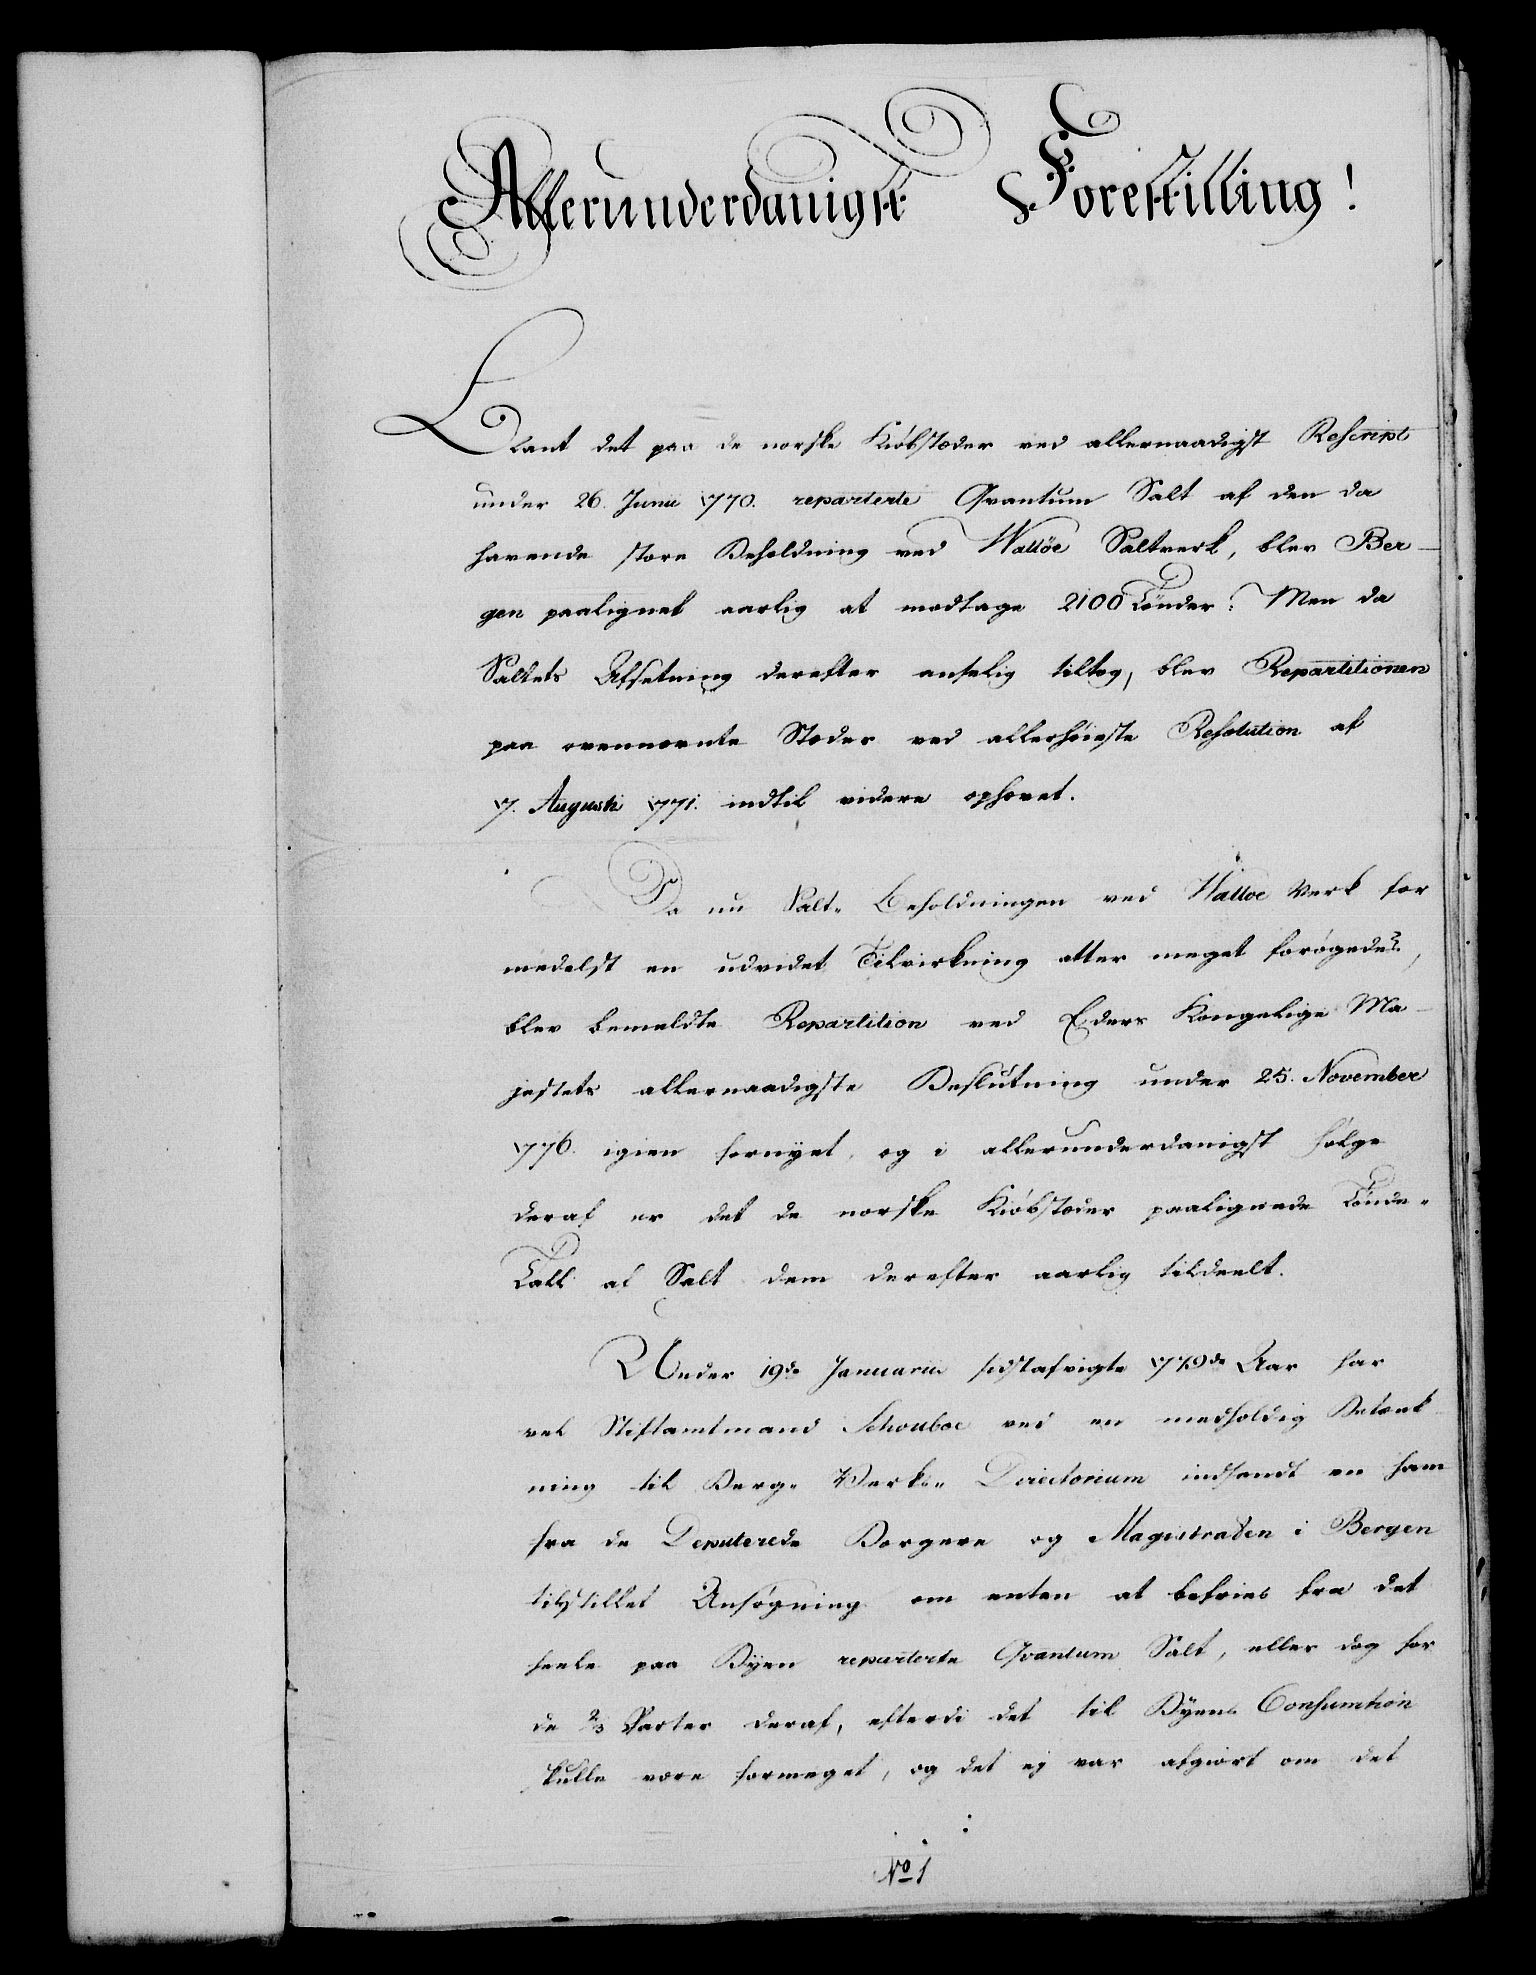 Allerunderdanigst Forestilling!
Blant det paa de norske Kiöbstæder ved allernaadigst Rescript
under 26. Junii 1770. reparterte Qvantum Salt af den da
havende store Beholdning ved Walløe Saltverk, blev Ber-
gen paalignet aarlig at modtage 2100 Tönder: Men da
Saltets Afsetning derefter anselig tiltog, blev Repartitionen
paa ovennævnte Stæder ved allerhöieste Resolution af
7. Augusti 1771. indtil videre ophævet.
Da nu Salt-Beholdningen ved Walløe Verk for
medelst en udvidet Tilvirkning atter meget forøgedes,
blev bemeldte Repartition ved Eders Kongelige Ma-
jestets allernaadigste Beslutning under 25. November
1776. igien fornyet, og i allerunderdanigst fölge
deraf er det de norske Kiöbstæder paalignede Tönde-
Tall af Salt dem derefter aarlig tildeelt.
Under 19de Januarii sidstafvigte 1779de Aar har
vel Stiftamtmand Schouboe ved en medholdig Betænk-
ning til Berg-Verks-Directorium indsendt en ham
fra de Deputerede Borgere og Magistraten i Bergen
tilstillet Ansøgning om enten at befries fra det
heele paa Byen reparterte Qvantum Salt, eller dog for
de 2/3 Parter deraf, efterdi det til Byens Consumtion
skulle være formeget, og det ej var afgiort om det
No 1